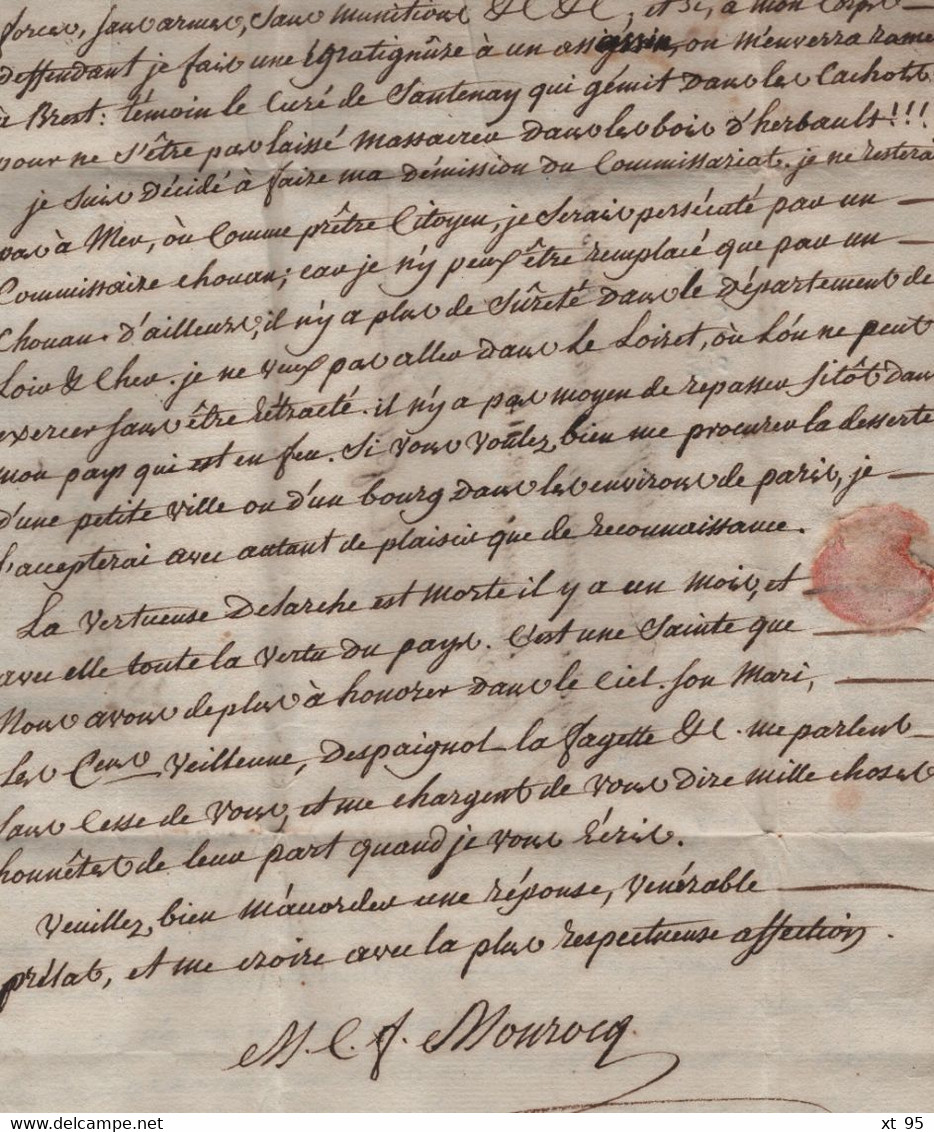 forces, sans armes, sans munitions &c &c, et si, à mon corps
deffendant je fais une égratignûre à un assassin, on m'enverra rame
à Brest: témoin le Curé de Santenay qui gémit dans les Cachots
pour ne s'être pas laissé massacrer dans les bois d'herbault!!!
je suis décidé à faire ma démission du Commissariat. je ne resterai
pas à Mer, où comme prêtre Citoyen, je serais persécuté par un
Commissaire chouan; car je n'y peux être remplacé que par un
Chouan. d'ailleurs, il n'y a plus de sûreté dans le département de
Loir & Cher. je ne veux pas aller dans le Loiret, où l'on ne peut
exercer sans être rétracté. il n'y a pas moyen de repasser sitôt dans
mon pays qui est en feu. Si vous voulez bien me procurer la desserte
d'une petite ville ou d'un bourg dans les environs de paris, je
l'accepterai avec autant de plaisir que de reconnaissance.
La vertueuse Delarche est morte il y a un mois, et
avec elle toute la vertu du pays. C'est une Sainte que
Nous avons de plus à honorer dans le Ciel. son Mari,
les Cens Veillenne, Despaignol la fagette &c. me parlent
sans cesse de vous, et me chargent de vous dire mille choses
honnêtes de leur part quand je vous écris.
Veuillez bien m'accorder une réponse, vénérable
prélat, et me croire avec la plus respectueuse affection.
M. C. f. Mourocq
xt 95